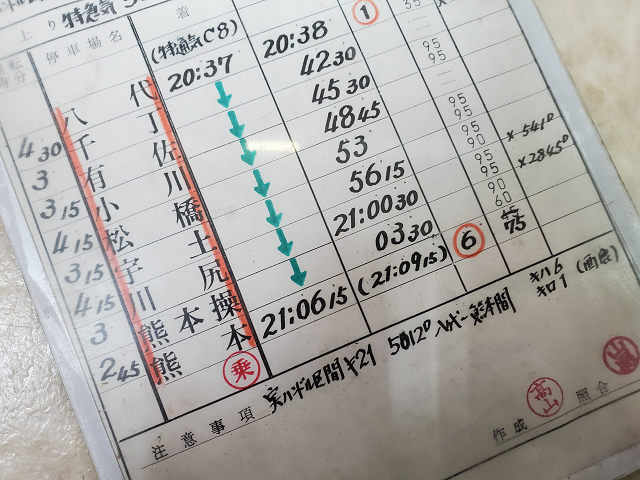 上り 特急気
停車場名 着
時分
(特通気C8)
八代 20:37 20:38 ①
4 30 千丁 42 30 95
3 有佐 45 30 95
3 15 小川 48 45 95
4 15 松橋 53 95
3 15 宇土 56 15 90
4 15 川尻 21:00 30 95
3 熊本操 03 30 90
2 45 熊本 21:06 15 (21:09 15) ⑥ 75
×541D
×2845D
乗
注意事項 実ハンドル区間 キ21 5012D
キハ6
キロ1
作成 高山 照合